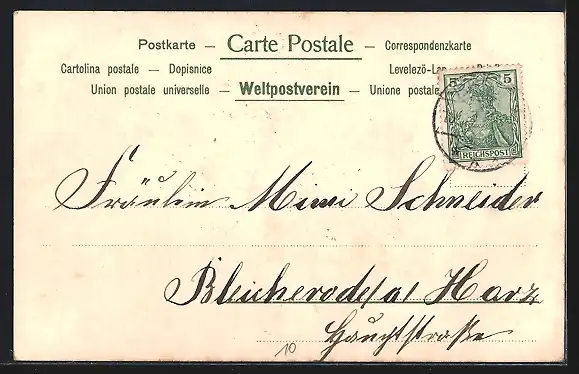 Postkarte — Carte Postale — Correspondenzkarte
Cartolina postale — Dopisnice Levelezö-
Union postale universelle — Weltpostverein — Unione postale
5 5
REICHSPOST
Fräulein Mimi Schneider
Bleicherode/a/ Harz
Hauptstraße
10